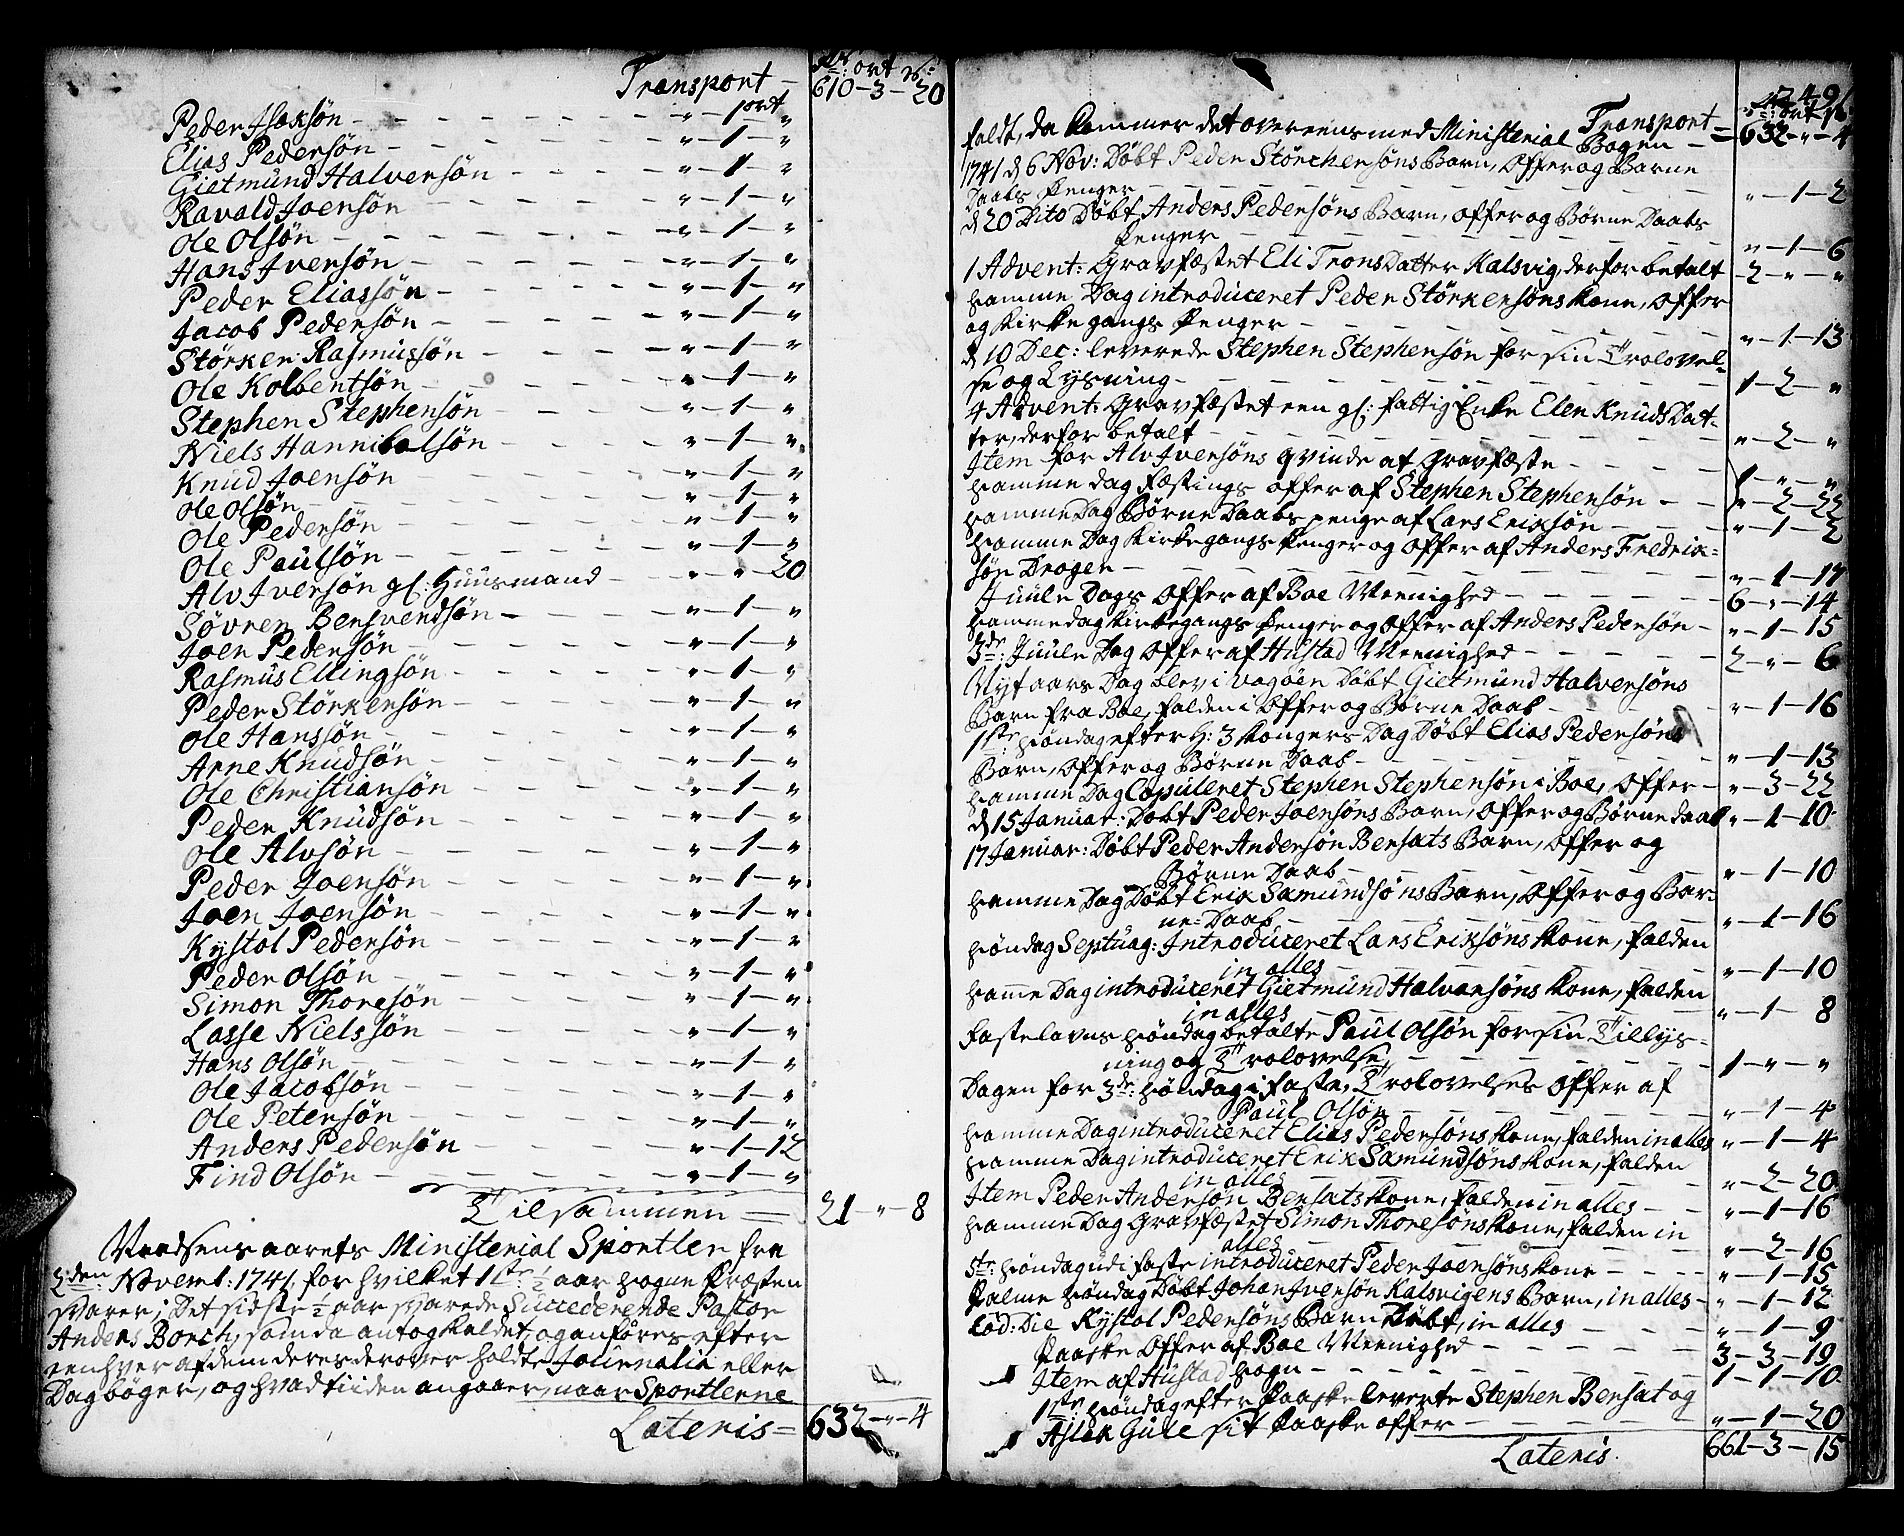 Rdr ort ß:
Transport — 610-3-20
Peder Isaksøn — „ — 1 ort „
Elias Pedersøn — „ — 1 — „
Gietmund Halversøn — „ — 1 — „
Ravald Joensøn — „ — 1 — „
Ole Olsøn — „ — 1 — „
Hans Iversøn — „ — 1 — „
Peder Eliassøn — „ — 1 — „
Jacob Pedersøn — „ — 1 — „
Størker Rasmussøn — „ — 1 — „
Ole Kolbentsøn — „ — 1 — „
Stephen Stephensøn — „ — 1 — „
Niels Hannibalsøn — „ — 1 — „
Knud Joensøn — „ — 1 — „
Ole Olsøn — „ — 1 — „
Ole Pedersøn — „ — 1 — „
Ole Paulsøn — „ — 1 — „
Alv Iversøn gl: Huusmand — „ — „ — 20
Søvren Bensvendsøn — „ — 1 — „
Joen Pedersøn — „ — 1 — „
Rasmus Ellingsøn — „ — 1 — „
Peder Størkersøn — „ — 1 — „
Ole Hanssøn — „ — 1 — „
Arne Knudsøn — „ — 1 — „
Ole Christiansøn — „ — 1 — „
Peder Knudsøn — „ — 1 — „
Ole Alvsøn — „ — 1 — „
Peder Joensøn — „ — 1 — „
Joen Joensøn — „ — 1 — „
Kystol Pedersøn — „ — 1 — „
Peder Olsøn — „ — 1 — „
Simon Thoresøn — „ — 1 — „
Lasse Nielssøn — „ — 1 — „
Hans Olsøn — „ — 1 — „
Ole Jacobsøn — „ — 1 — „
Ole Petersøn — „ — 1 — „
Anders Pedersøn — „ — 1 — 12
Find Olsøn — „ — 1 — „
Tilsammen = 21 - „ - 8
Naadsens aarets Ministerial Sportler fra
2den Novemb: 1741, for hvilket 1ste ½ aar Sogne Præsten
svarer; Det sidste ½ aar svarede Succederende Pastor
Anders Borch, som da antog Kaldet, og anføres efter
een hver af dem deres derover holdte Journalia eller
Dagbøger, og hvad tiiden angaaer, naar Sportlerne
Lateris = 632 - „ - 4
249
Transport = 632 - „ - 4
faldt, da kommer det overeens med Ministerial Bogen —
1741 d 6 Nov: Døbt Peder Størchersøns Barn, Offer og Børne
Daabs Penger — „ — 1 — 2
d 20 Dito Døbt Anders Pedersøns Barn, Offer og Børne Daabs
Penger — „ — 1 — 6
1 Advent: Gravfæstet Eli Trons Datter Kalsvig, derfor betalt 2 - „ - „
Samme Dag introduceret Peder Størkersøns Kone, Offer
og Kirke gangs Penger — „ — 1 — 13
d 10 Dec: leverede Stephen Stephensøn for sin Trolovel-
se og Lysning — 1 — 2 — „
4 Advent: Gravfæstet een gl: fattig Enke Elen Knuds Dat-
ter, derfor betalt — „ — 2 — „
Item for Alv Iversøns Qvinde af Gravfæste — 1 — „ — „
Samme dag Fæstings offer af Stephen Stephensøn — „ — 2 — 22
Samme Dag Børne Daabs penge af Lars Eriksøn — „ — 1 — 2
Samme Dag Kirkegangs Penger og Offer af Anders Fredrik-
søn Drogen — „ — 1 — 17
Juule Dags Offer af Boe Meenighed — 6 - „ - 14
Samme dag Kirkegangs Penger og Offer af Anders Pedersøn — „ — 1 — 15
3de: Juule Dag Offer af Hustad Meenighed — 2 - „ - 6
Nyt aars Dag blev i Vagøen Døbt Gietmund Halversøns
Barn fra Boe, falden i Offer og Børne Daab — „ — 1 — 16
1ste: Søndag efter H: 3 Kongers Dag Døbt Elias Pedersøns
Barn, Offer og Børne Daab — „ — 1 — 13
Samme Dag Copuleret Stephen Stephensøn i Boe, Offer — „ — 3 — 22
d 15 Januar: Døbt Peder Joensøns Barn, Offer og Børne daab „ — 1 — 10
17 Januar: Døbt Peder Andersøn Bersats Barn, Offer og
Børne Daab — „ — 1 — 10
Samme Dag Døbt Erik Samundsøns Barn, Offer og Bør-
ne-Daab — „ — 1 — 16
Søndag Septuag: Introduceret Lars Eriksøns Kone, falden
in alles — „ — 1 — 10
Samme Dag introduceret Gietmund Halvarsøns Kone, falden
in alles — „ — 1 — 8
Fastelavns Søndag betalte Paul Olsøn for sin Tillys-
ning og Trolovelse — 1 - „ - „
Dagen for 3de: Søndag i faste, Trolovelses Offer af
Paul Olsøn — „ — 1 — 4
Samme Dag introduceret Elias Pedersøns Kone, falden in alles „ — 1 — 4
Samme Dag introduceret Erik Samundsøns Kone, falden
in alles — „ — 2 — 20
Item Peder Andersøn Bersats Kone, falden in alles — „ — 1 — 16
Samme Dag Gravfæstet Simon Thoresøns Kone, falden in
alles — „ — 2 — 16
5te: Søndag udi faste introduceret Peder Joensøns Kone — „ — 1 — 15
Palme Søndag Døbt Johan Iversøn Kalsvigens Barn, in alles — „ — 1 — 12
Eod: Die Kystol Pedersøns Barn Døbt, in alles — „ — 1 — 9
Paaske Offer af Boe Meenighed — 3 — 3 — 19
Item af Hustad Sogn — 1 — 1 — 10
1ste: Søndag efter Paaske leverte Stephen Bersat og
Aslak Gule sit Paaske offer — „ — 1 — 20
Lateris. 661 - 3 - 15